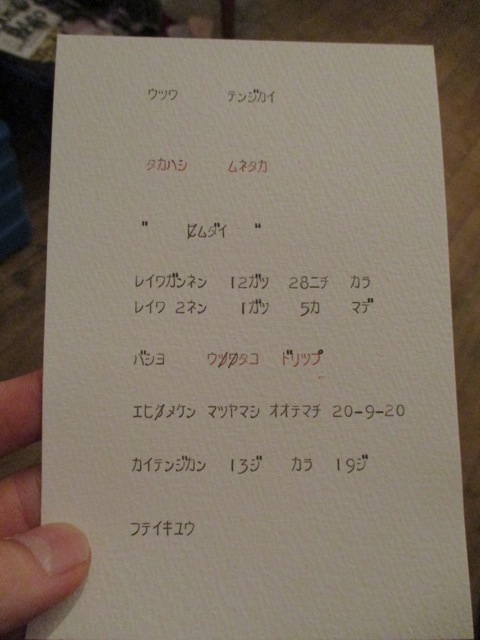 ウツワ テンジカイ
タカハシ ムネタカ
" ムダイ "
レイワガンネン 12ガツ 28ニチ カラ
レイワ 2ネン 1ガツ 5カ マデ
バシヨ ウツワタコ ドリツプ
エヒメケン マツヤマシ オオテマチ 20-9-20
カイテンジカン 13ジ カラ 19ジ
フテイキユウ